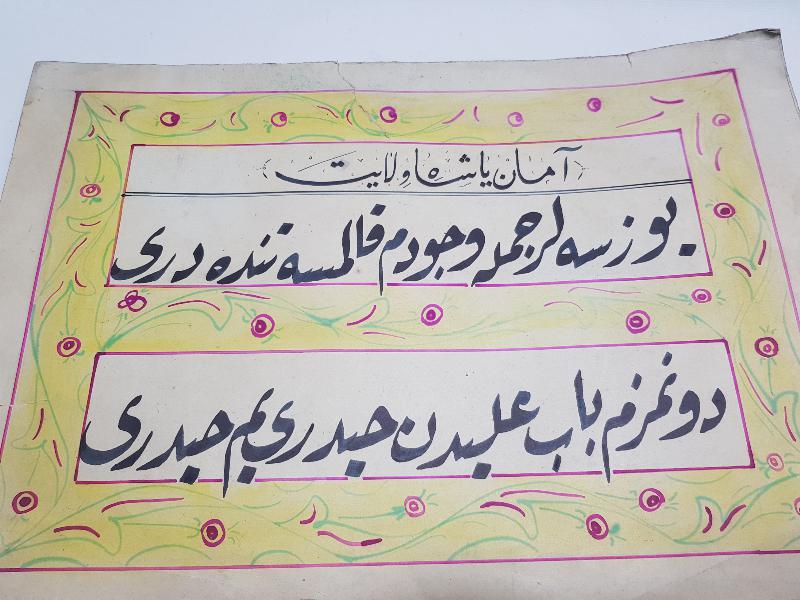 آمان یا شاه ولایت
یوزسه لر جمله وجودم قالمسه تنده دری
دونمزم باب علیدن حیدری یم حیدری